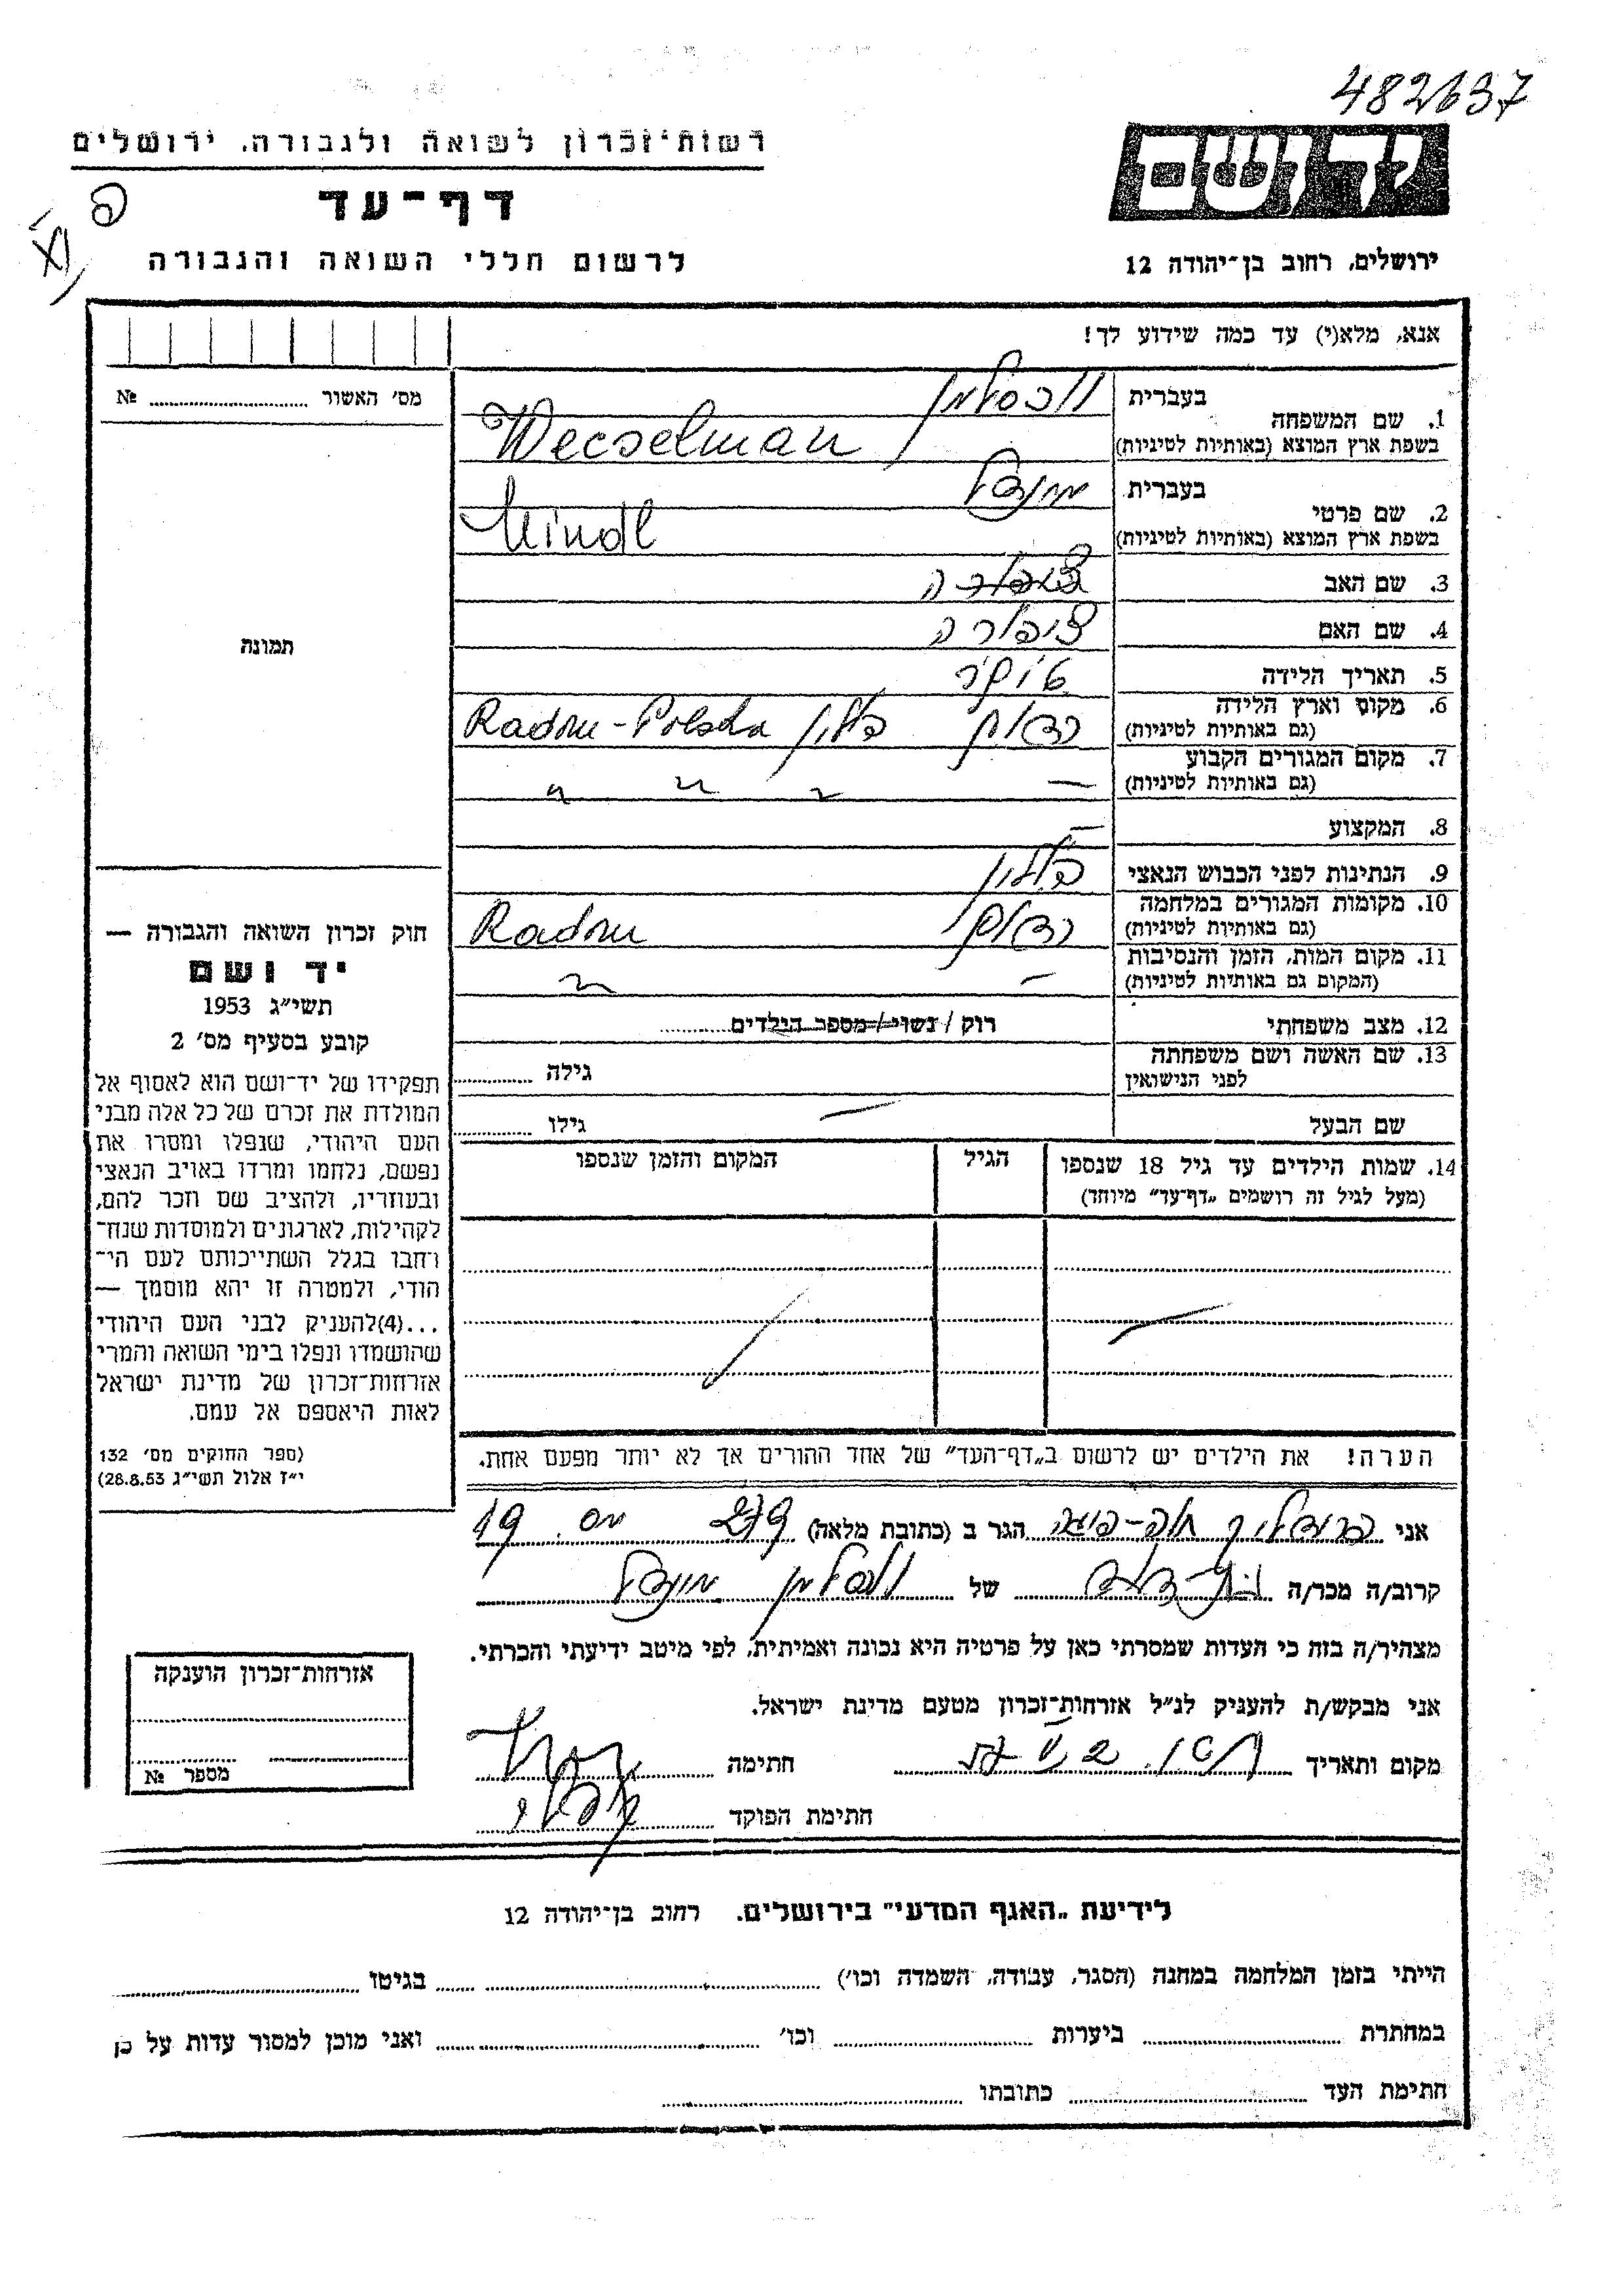 482637
רשות־זכרון לשואה ולגבורה, ירושלים
דף־עד
לרשום חללי השואה והגבורה
ירושלים, רחוב בן־יהודה 12
אנא, מלא(י) עד כמה שידוע לך!
מס׳ האשור № 
1. שם המשפחה בעברית וכסלמן
בשפת ארץ המוצא (באותיות לטיניות) Wecselman
2. שם פרטי בעברית מינדל
בשפת ארץ המוצא (באותיות לטיניות) Mindl
3. שם האב
4. שם האם ציפורה
5. תאריך הלידה
6. מקום וארץ הלידה (גם באותיות לטיניות) רדום פולין Radom-Polska
7. מקום המגורים הקבוע (גם באותיות לטיניות) —
8. המקצוע —
9. הנתינות לפני הכבוש הנאצי פולין
10. מקומות המגורים במלחמה (גם באותיות לטיניות) רדום Radom
11. מקום המות, הזמן והנסיבות (המקום גם באותיות לטיניות) —
12. מצב משפחתי רוק / נשוי / מספר הילדים
13. שם האשה ושם משפחתה לפני הנישואין גילה
שם הבעל — גילו
14. שמות הילדים עד גיל 18 שנספו
(מעל לגיל זה רושמים „דף־עד” מיוחד)
הגיל
המקום והזמן שנספו
תמונה
חוק זכרון השואה והגבורה —
יד ושם
תשי״ג 1953
קובע בסעיף מס׳ 2
תפקידו של יד־ושם הוא לאסוף אל
המולדת את זכרם של כל אלה מבני
העם היהודי, שנפלו ומסרו את
נפשם, נלחמו ומרדו באויב הנאצי
ובעוזריו, ולהציב שם וזכר להם,
לקהילות, לארגונים ולמוסדות שנח־
רחבו בגלל השתייכותם לעם הי־
הודי, ולמטרה זו יהא מוסמך —
...(4)להעניק לבני העם היהודי
שהושמדו ונפלו בימי השואה והמרי
אזרחות־זכרון של מדינת ישראל
לאות היאספם אל עמם.
(ספר החוקים מס׳ 132
י״ז אלול תשי״ג 28.8.53)
הערה! את הילדים יש לרשום ב„דף־העד” של אחד ההורים אך לא יותר מפעם אחת.
אני הגר ב (כתובת מלאה) 19
קרוב/ה מכר/ה של וכסלמן מינדל
מצהיר/ה בזה כי העדות שמסרתי כאן על פרטיה היא נכונה ואמיתית, לפי מיטב ידיעתי והכרתי.
אני מבקש/ת להעניק לנ״ל אזרחות־זכרון מטעם מדינת ישראל.
מקום ותאריך חתימה
חתימת הפוקד
אזרחות־זכרון הוענקה
מספר №
לידיעת „האגף המדעי” בירושלים. רחוב בן־יהודה 12
הייתי בזמן המלחמה במחנה (הסגר, עבודה, השמדה וכו׳) בגיטו
במחתרת ביערות וכו׳ ואני מוכן למסור עדות על כן
חתימת העד כתובתו